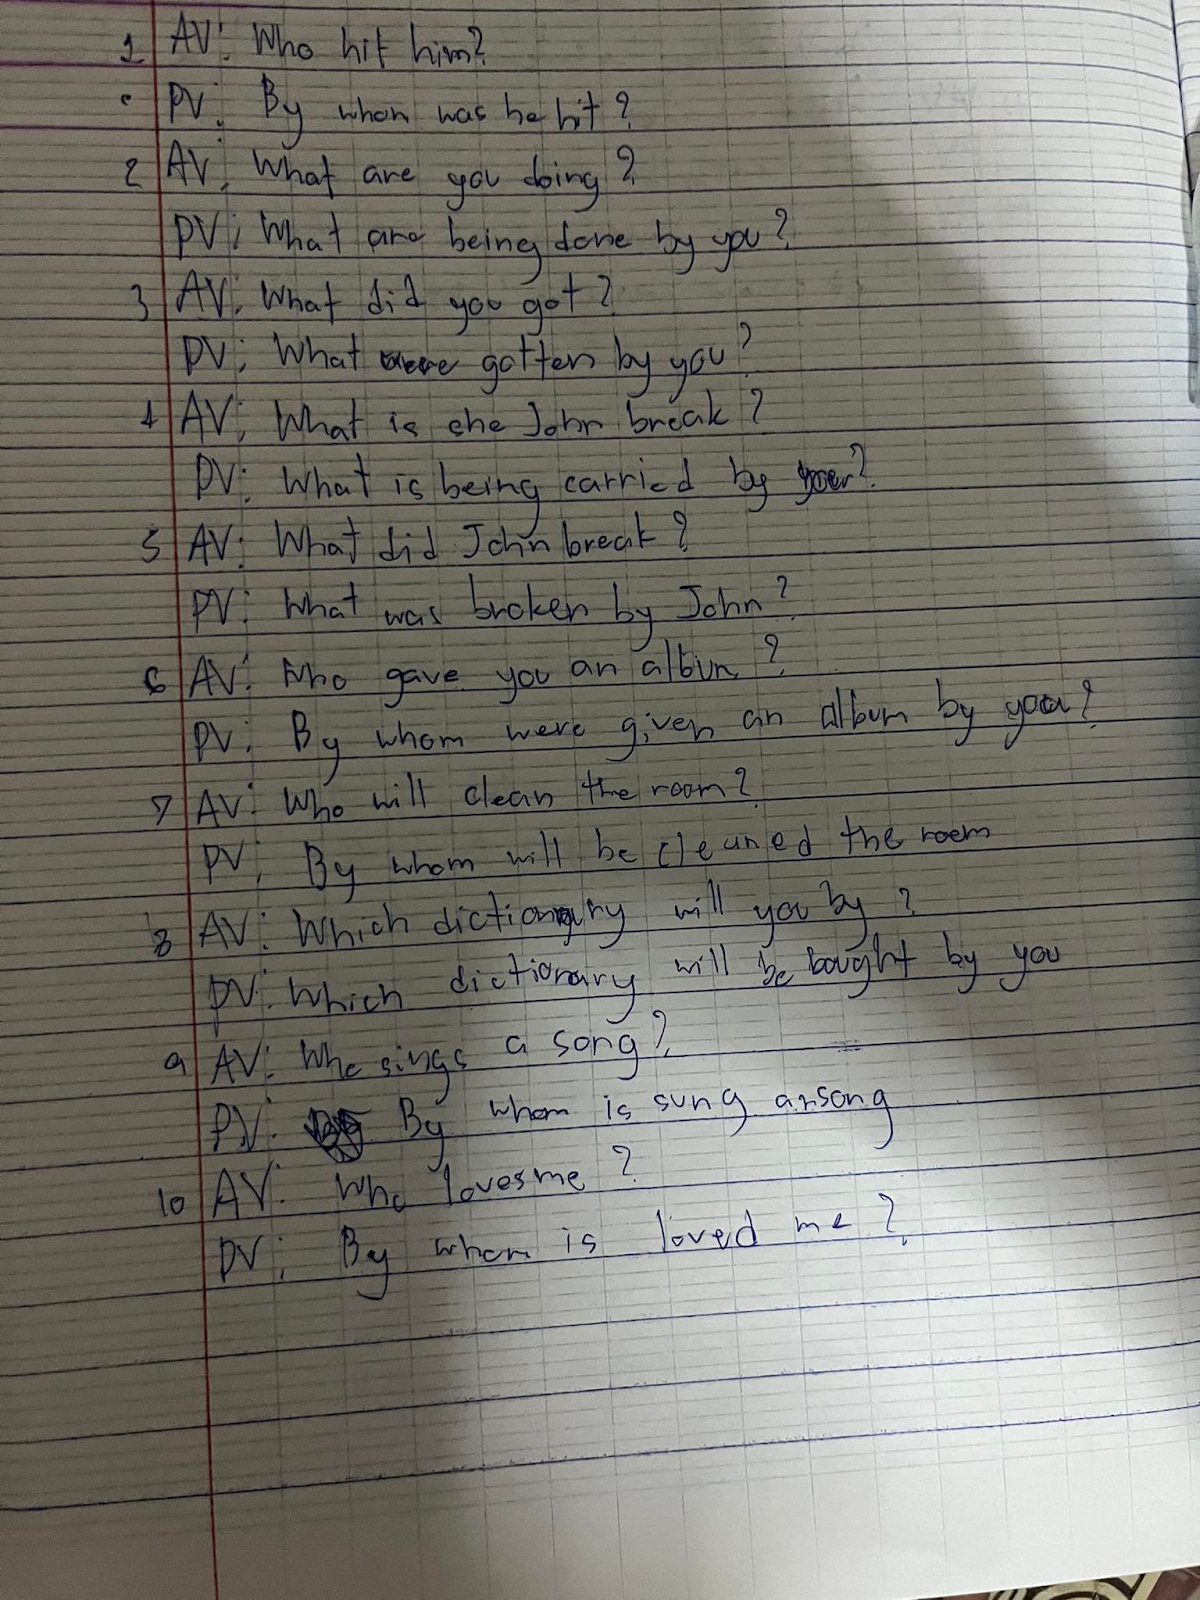 1 AV: Who hit him?
PV: By whom was he hit?
2 AV: What are you doing?
PV: What are being done by you?
3 AV: What did you got?
PV: What were gotten by you?
4 AV: What is she John break?
PV: What is being carried by
5 AV: What did John break?
PV: What was broken by John?
6 AV: Who gave you an album?
PV: By whom were given an album by you?
7 AV: Who will clean the room?
PV: By whom will be cleaned the room
8 AV: Which dictionary will you by?
PV: Which dictionary will be bought by you
9 AV: Who sings a song?
PV: By whom is sung a song
10 AV: Who loves me?
PV: By whom is loved me?